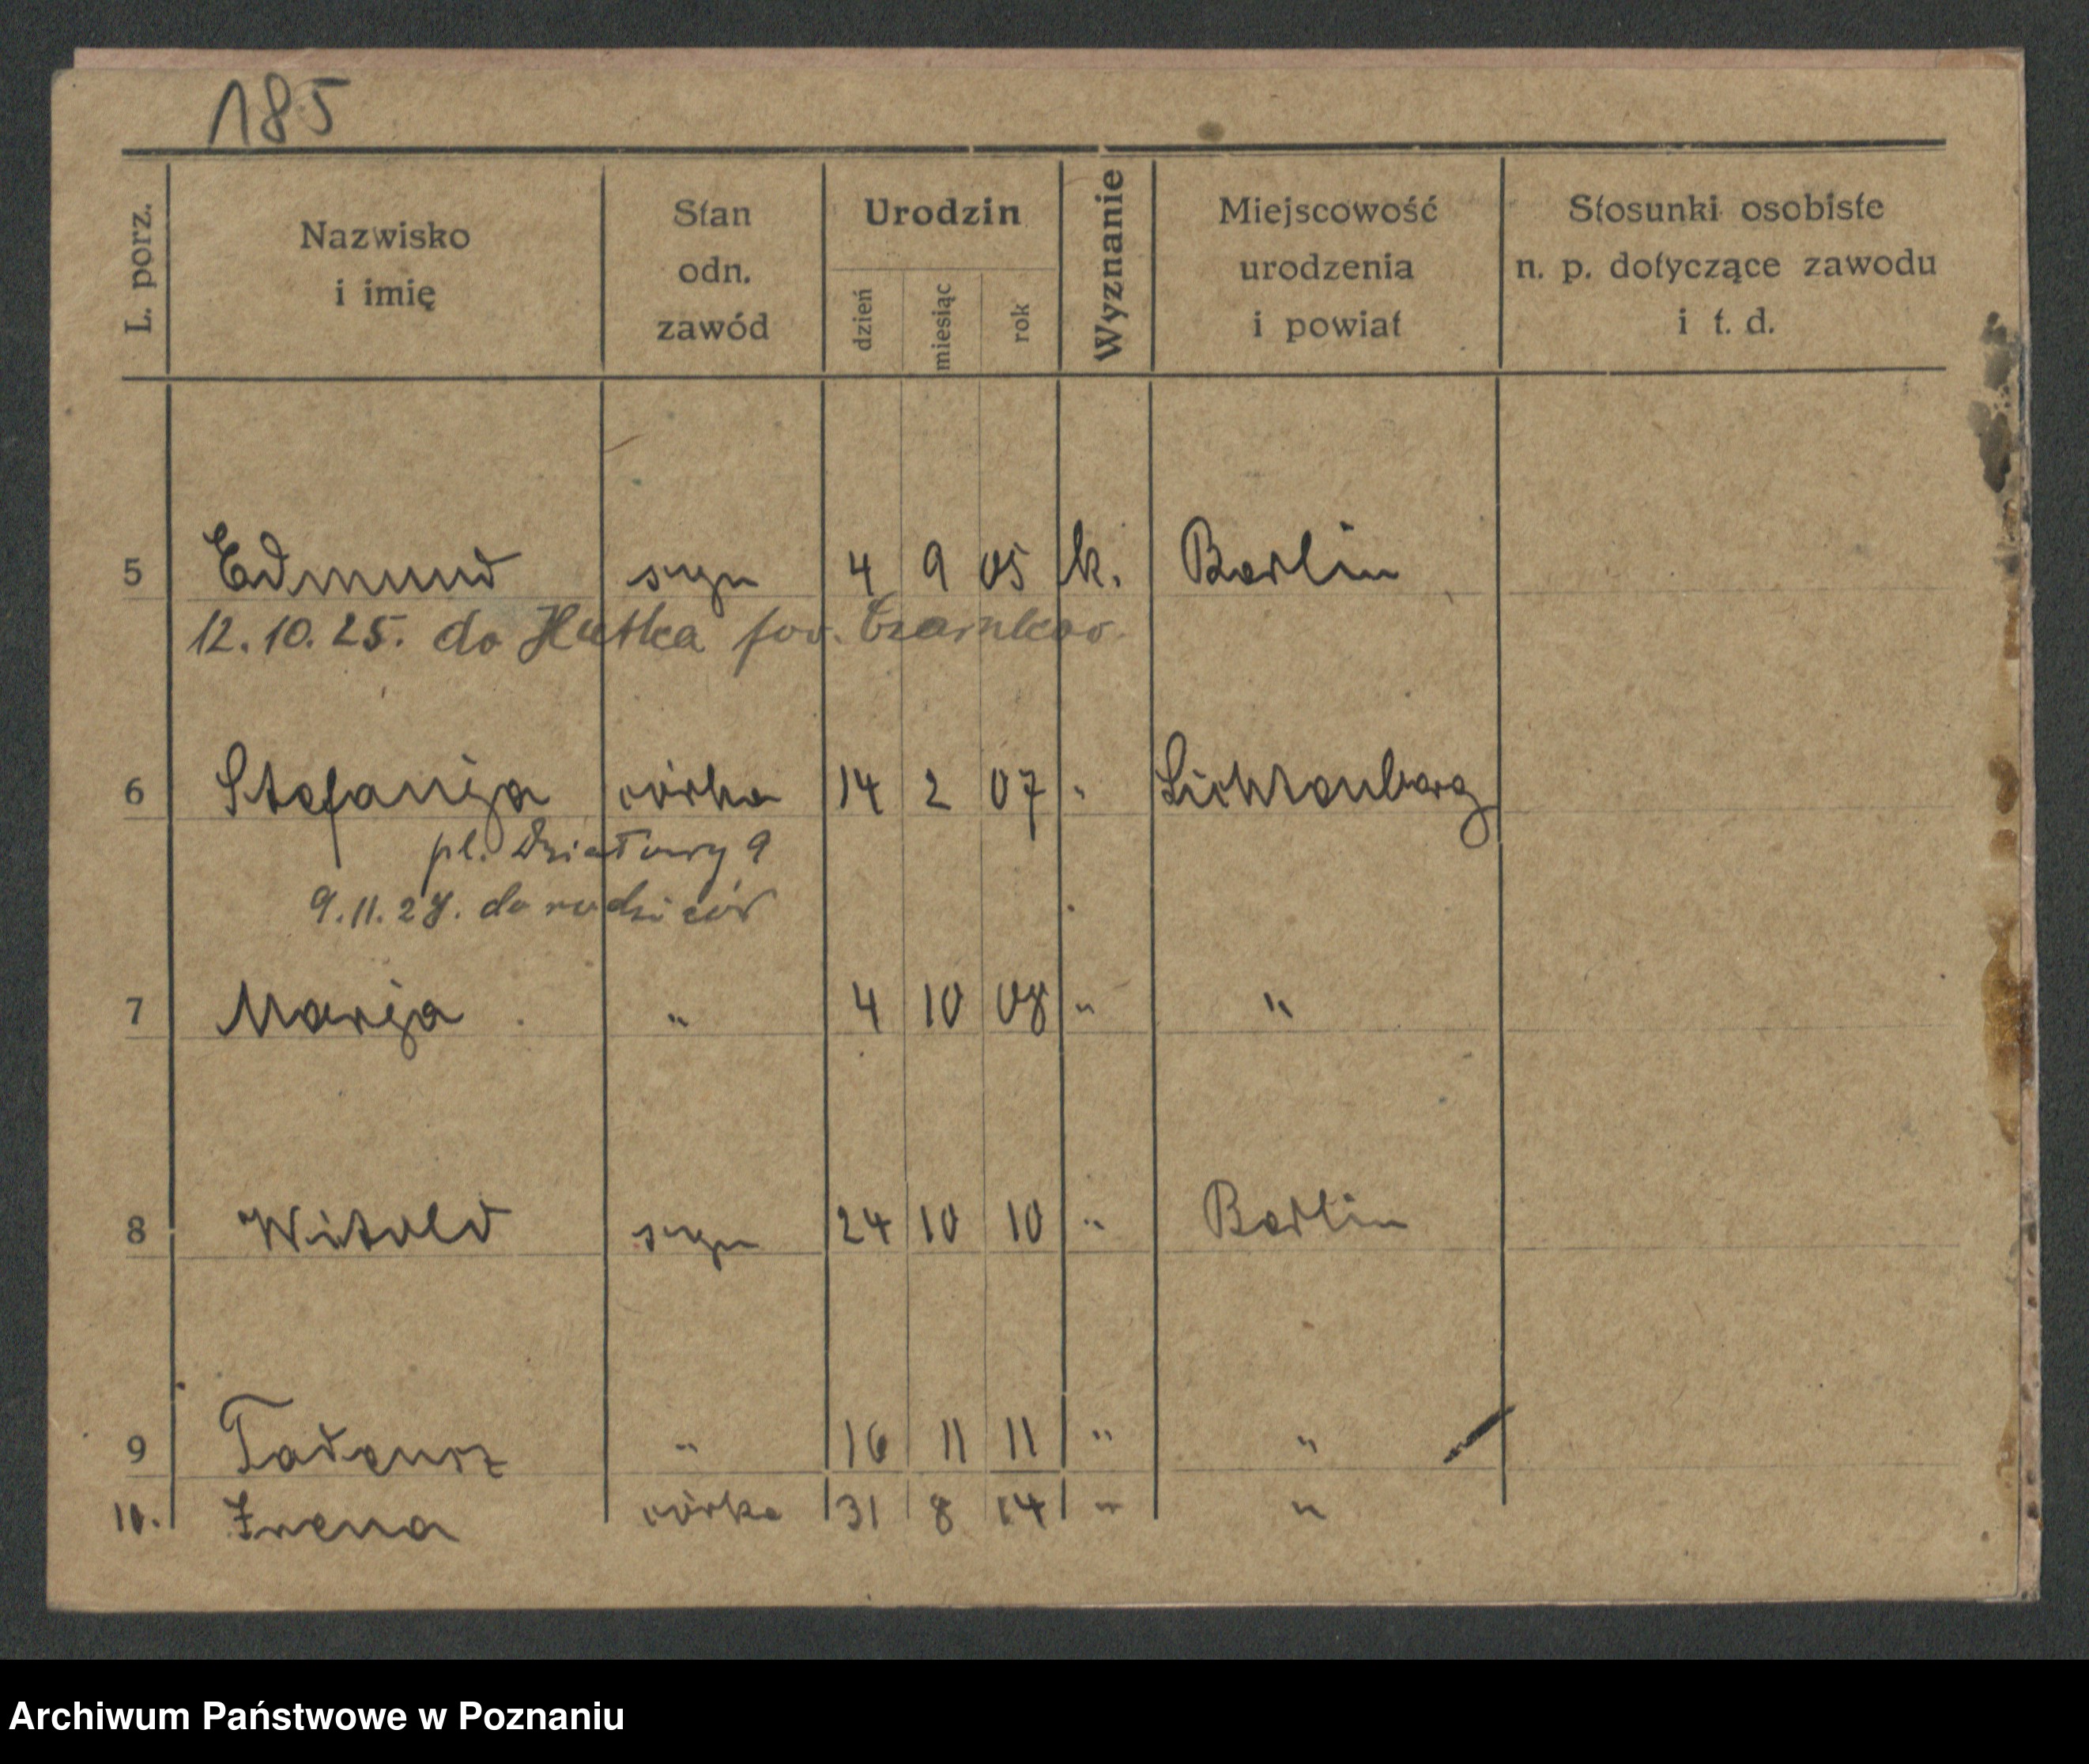 185
L. porz.
Nazwisko
i imię
Stan
odn.
zawód
Urodzin
dzień
miesiąc
rok
Wyznanie
Miejscowość
urodzenia
i powiat
Stosunki osobiste
n. p. dotyczące zawodu
i t. d.
5 Edmund syn 4 9 05 k. Berlin
12.10.25. do Hutka pow. Czarnków
6 Stefanija córka 14 2 07 " Lichtenberg
pl. Działowy 9
9.11.28. do rodziców
7 Marija " 4 10 08 " "
8 Witold syn 24 10 10 " Berlin
9 Tadeusz " 16 11 11 " "
10. Irena córka 31 8 14 " "
Archiwum Państwowe w Poznaniu